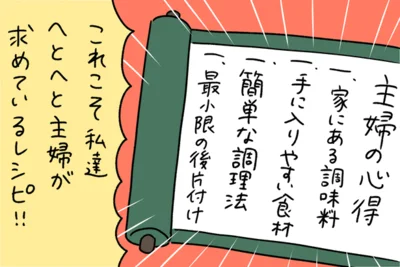 主婦の心得
一、家にある調味料
一、手に入りやすい食材
一、簡単な調理法
一、最小限の後片付け
これこそ私達
へとへと主婦が
求めているレシピ!!